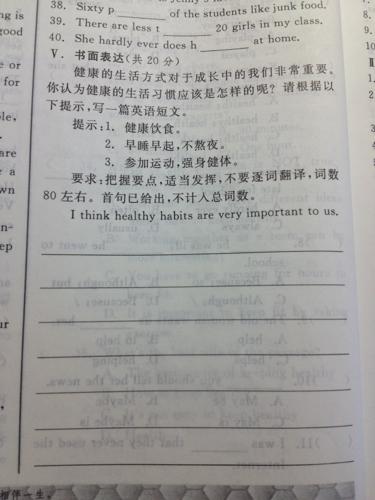 38. Sixty p________ of the students like junk food.
39. There are less t________ 20 girls in my class.
40. She hardly ever does h________ at home.
Ⅴ. 书面表达(共 20 分)
健康的生活方式对于成长中的我们非常重要。
你认为健康的生活习惯应该是怎样的呢? 请根据以
下提示,写一篇英语短文。
提示:1. 健康饮食。
2. 早睡早起,不熬夜。
3. 参加运动,强身健体。
要求:把握要点,适当发挥,不要逐词翻译,词数
80 左右。首句已给出,不计入总词数。
I think healthy habits are very important to us.
相伴一生。